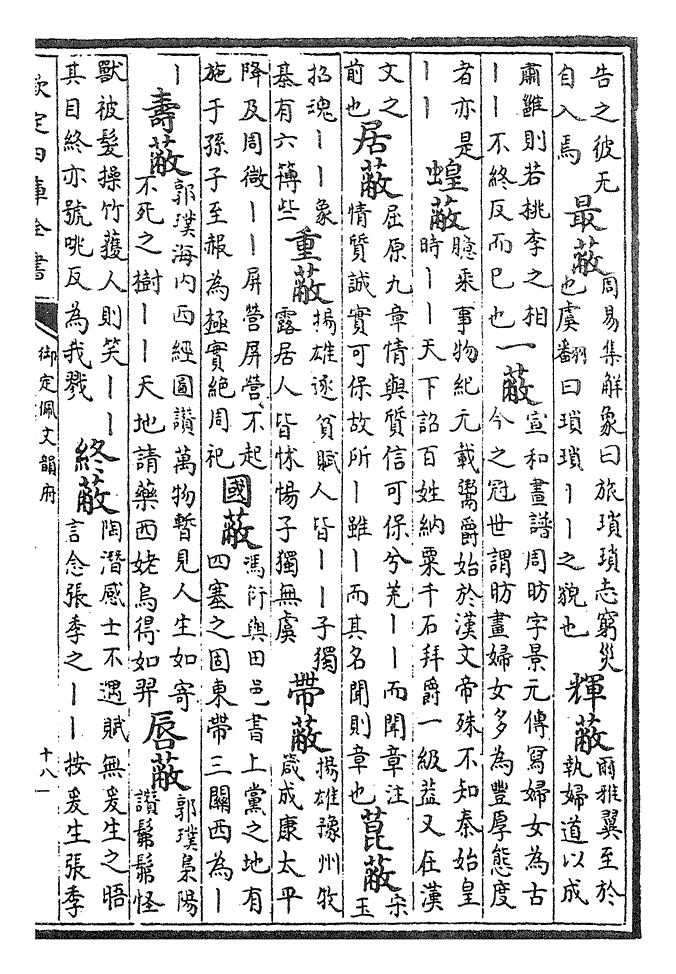 告之彼无
自入焉
最蔽
周易集解象曰旅瑣瑣志窮災
也虞翻曰瑣瑣丨丨之貌也
輝蔽
爾雅翼至於
執婦道以成
肅雝則若桃李之相
丨丨不終反而已也
一蔽
宣和畫譜周昉字景元傳寫婦女為古
今之冠世謂昉畫婦女多為豐厚態度
者亦是
丨丨
蝗蔽
臆乘事物紀元載鬻爵始於漢文帝殊不知秦始皇
時丨丨天下詔百姓納粟千石拜爵一級益又在漢
文之
前也
居蔽
屈原九章情與質信可保兮羌丨丨而聞章注
情質誠實可保故所丨雖丨而其名聞則章也
菎蔽
宋
玉
招魂丨丨象
棊有六簙些
重蔽
揚雄逐貧賦人皆丨丨子獨
露居人皆怵惕子獨無虞
帶蔽
揚雄豫州牧
箴成康太平
降及周微丨丨屏營屏營不起
施于孫子至赧為極實絕周祀
國蔽
馮衍與田邑書上黨之地有
四塞之固東帶三關西為丨
丨
壽蔽
郭璞海內西經圖讚萬物暫見人生如寄
不死之樹丨丨天地請藥西姥烏得如羿
唇蔽
郭璞梟陽
讚髴髴怪
獸被髮操竹蒦人則笑丨丨
其目終亦號咷反為我戮
終蔽
陶潛感士不遇賦無爰生之晤
言念張季之丨丨按爰生張季
欽定四庫全書
御定佩文韻府
十八